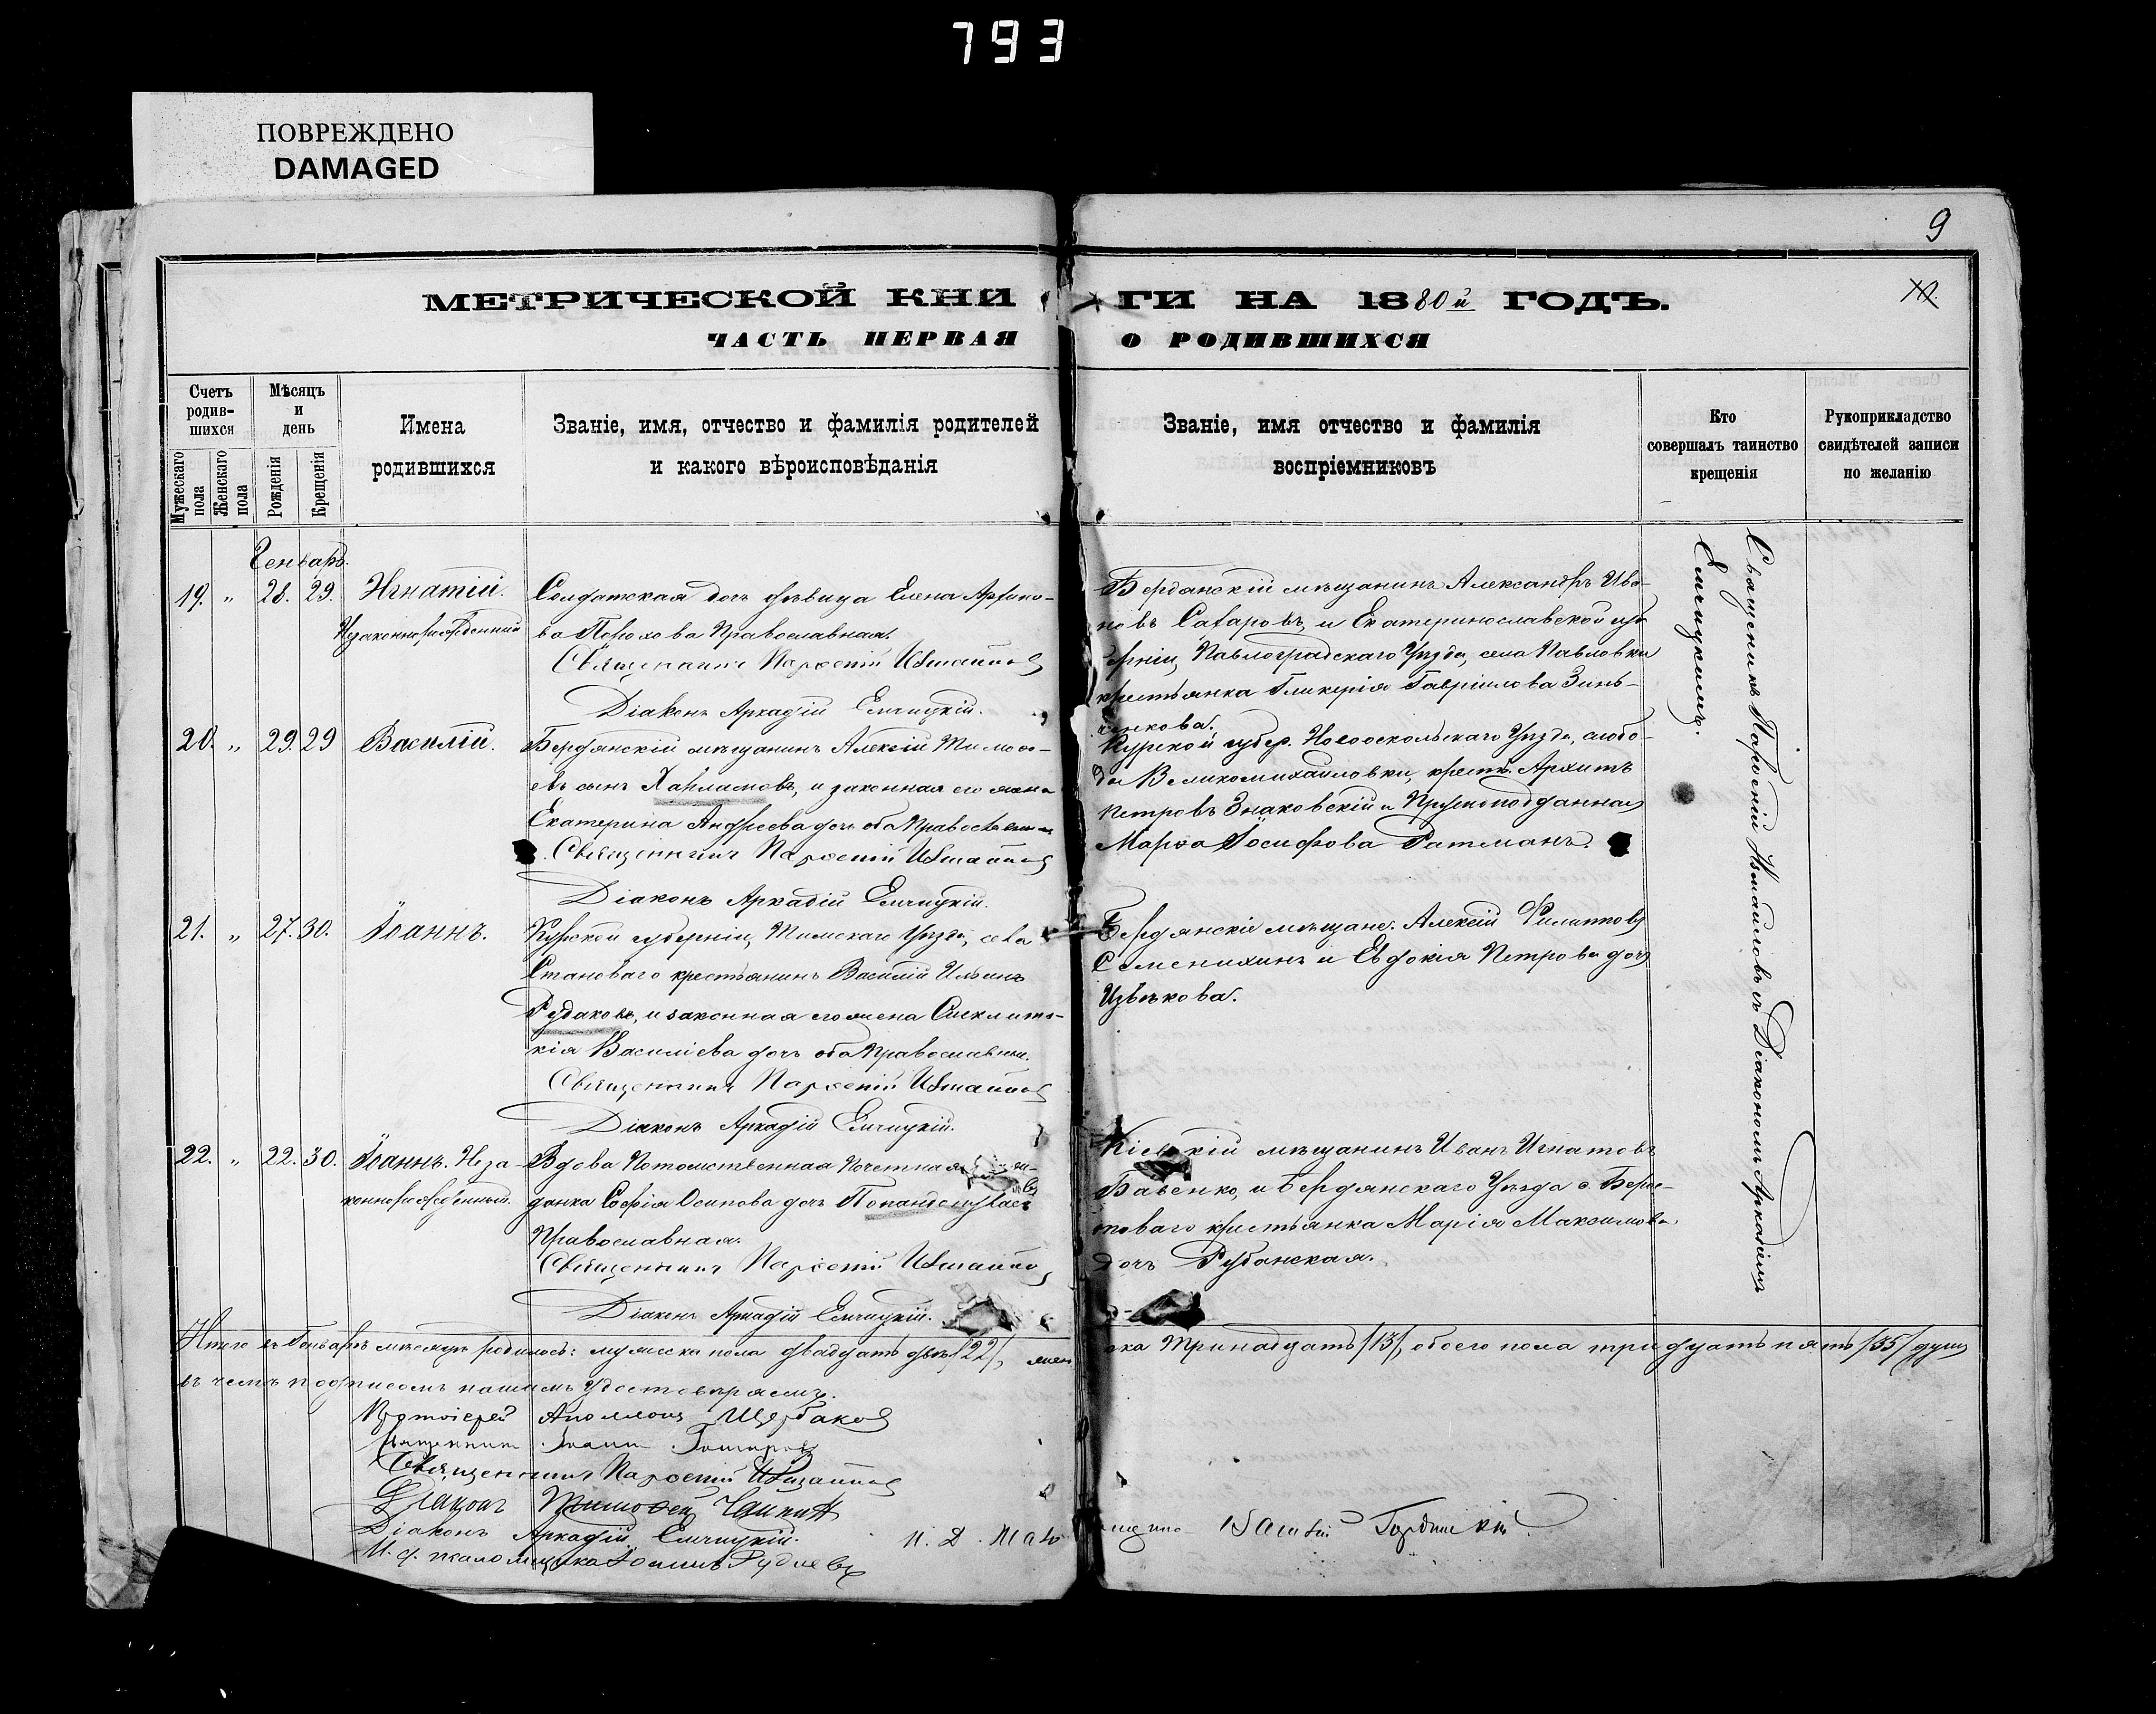 793
ПОВРЕЖДЕНО
DAMAGED
9
МЕТРИЧЕСКОЙ КНИГИ НА 1880й ГОДЪ.
ЧАСТЬ ПЕРВАЯ О РОДИВШИХСЯ
Счетъ родившихся
Мужескаго пола
Женскаго пола
Мѣсяцъ и день
Рожденія
Крещенія
Имена родившихся
Званіе, имя, отчество и фамилія родителей
и какого вѣроисповѣданія
Званіе, имя отчество и фамилія
воспріемниковъ
Кто
совершалъ таинство
крещенія
Рукоприкладство
свидѣтелей записи
по желанію
Генварь.
19. „ 28. 29. Игнатій.
Незаконнорожденный
Солдатская дочь дѣвица Елена
Православная.
Священникъ Парѳеній Измаиловъ
Діаконъ Аркадій Емчицкій.
Бердянскій мѣщанинъ Александръ Ива-
новъ Сафаровъ, и Екатеринославской гу-
берніи, Павлоградскаго Уѣзда, села Павловки
крестьянка Гликерія Гавріилова Зинь-
ченкова.
20. „ 29. 29 Василій.
Бердянскій мѣщанинъ Алексій Тимоѳе-
евъ сынъ Харламовъ, и законная его жена
Екатерина Андреева дочь оба Православные
Священникъ Парѳеній Измаиловъ
Діаконъ Аркадій Емчицкій.
Курской губер. Новооскольскаго Уѣзда, слобо-
ды Великомихайловки, крест. Архипъ
Петровъ Знаковскій и Прусскоподданная
Марѳа Іосифова Ратманъ.
21. „ 27. 30. Іоаннъ.
Курской губерніи, Тимскаго Уѣзда, села
Становаго крестьянинъ Василій Ильинъ
Рудаковъ, и законная его жена Синклити-
кія Василіева дочь оба Православные.
Священникъ Парѳеній Измаиловъ
Діаконъ Аркадій Емчицкій.
Бердянскіе мѣщане: Алексій Филипповъ
Семенихинъ и Евдокія Петрова дочь
Извѣкова.
22. „ 22. 30. Іоаннъ. Неза-
коннорожденный.
Вдова Потомственная Почетная
данка Софія Осипова дочь
Православная.
Священникъ Парѳеній Измаиловъ
Діаконъ Аркадій Емчицкій.
Кіевскій мѣщанинъ Иванъ Игнатовъ
Бабенко, и Бердянскаго Уѣзда с. Берес-
товаго крестьянка Марія Максимова
дочь Рубанская.
Священникъ Парѳеній Измаиловъ съ Діакономъ Аркадіемъ
Емчицкимъ.
Итого въ Генварѣ мѣсяцѣ родилось: мужеска пола двадцать два /22/, женска тринадцать /13/, обоего пола тридцать пять /35/ душъ
въ чемъ подписомъ нашимъ удостовѣряемъ.
Протоіерей Аполлонъ Щербаковъ
Священникъ Іоаннъ
Священникъ Парѳеній Измаиловъ
Діаконъ Тимоѳей Чапинъ
Діаконъ Аркадій Емчицкій.
И. д. псаломщика Іоаннъ Рудневъ
И. д. псаломщика